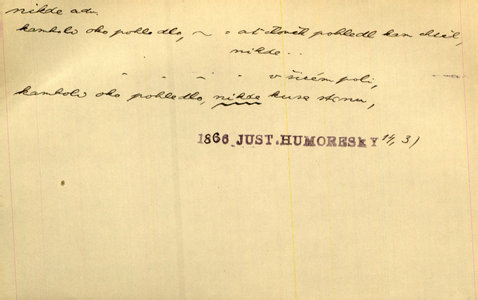 nikde adv.
kamkoliv oko pohledlo, ~ : ať člověk pohledl kam chtěl,
nikde..
v širém poli,
kamkoliv oko pohledlo, nikde kusa stínu,
1866 JUST.HUMORESKY 14, 31